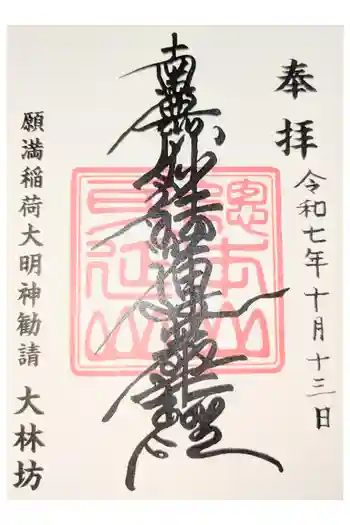 奉拝
令和七年十月十三日
南無妙法蓮華経
總本山
身延山
願満稲荷大明神勧請 大林坊